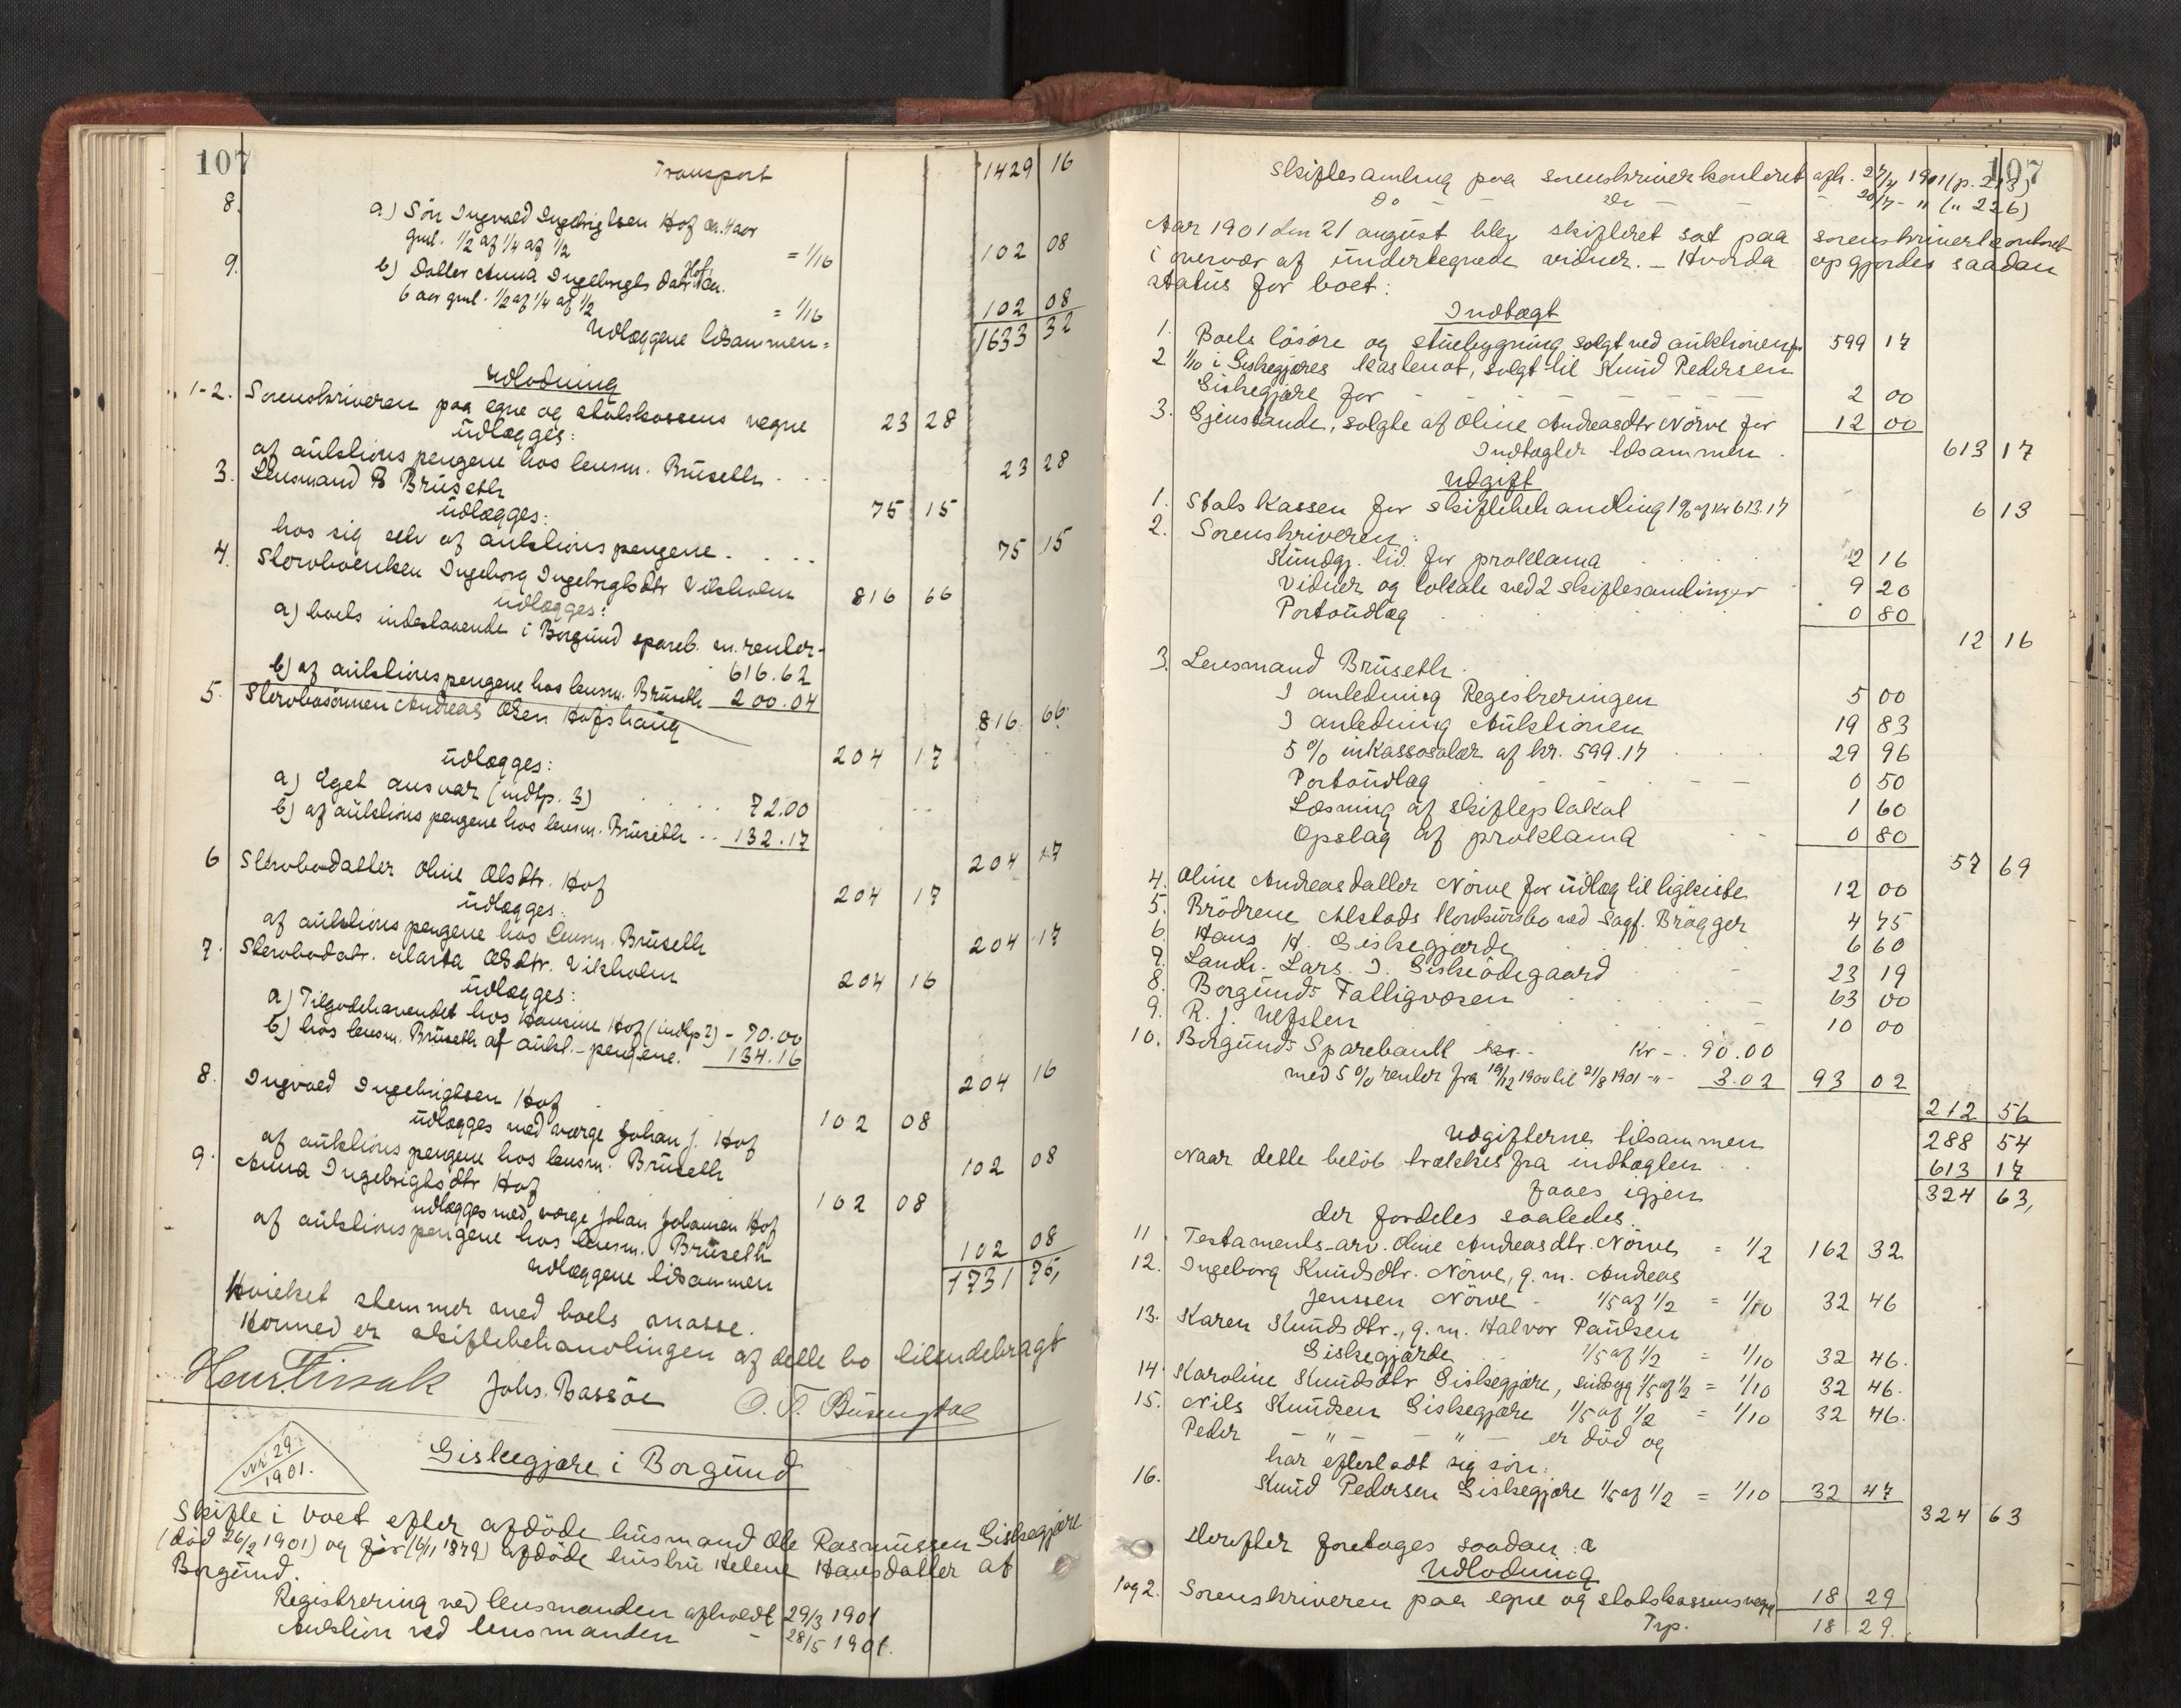 107
Transport 1429 16
8. a) Sön Ingvald Ingebrigtsen Hof
gml. 1/2 af 1/4 af 1/2 = 1/16 102 08
9. b) Datter Anna Ingebrigts datr. Hof
6 aar gml. 1/2 af 1/4 af 1/2 = 1/16 102 08
Udlæggene tilsammen = 1633 32
Udlodning
1-2. Sorenskriveren paa egne og statskassens vegne 23 28
üdlægges:
af auktionspengene hos lensm. Brüseth 23 28
3. Lensmand P. Brüseth 75 15
üdlægges:
hos sig selv af auktionspengene 75 15
4. Stervboenken Ingeborg Ingebrigtsdtr Vikholm 816 66
üdlægges:
a) boets indestaaende i Borgünd spareb. m. renter
616.62
b) af auktionspengene hos lensm. Brüseth 200.04
816 66
5. Stervbosönnen Andreas Olsen Hofshaug
204 17
üdlægges:
a) Eget ansvar (indtp. 3) 72.00
b) af auktionspengene hos lensm. Brüseth 132.17
204 17
6 Stervbodatter Oline Olsdtr. Hof 204 17
üdlægges:
af auktionspengene hos Lensm. Brüseth 204 17
7. Stervbodatr. Marta Olsdtr. Vikholm 204 16
üdlægges:
a) Tilgodehavendet hos Hansine Hof (indtp 2) - 70.00
b) hos lensm. Brüseth af aukt.-pengene. 134.16
204 16
8. Ingvald Ingebrigtsen Hof 102 08
üdlægges med værge Johan J. Hof
af auktionspengene hos lensm. Brüseth 102 08
9. Anna Ingebrigtsdtr Hof 102 08
udlægges med værge Johan Johansen Hof
af auktionspengene hos lensm. Brüseth 102 08
Udlæggene tilsammen 1731 75,
Hvilket stemmer med boets masse.
Hermed er skiftebehandlingen af dette bo tilendebragt
Johs. Bassöe
Nr 29
1901.
Giskegjære i Borgünd
Skifte i boet efter afdöde hüsmand Ole Rasmüssen Giskegjære
(död 26/2 1901) og för (16/11 1879) afdöde hüstrü Helene Hansdatter af
Borgünd.
Registrering ved lensmanden afholdt 29/3 1901
Auktion ved lensmanden - 28/5 1901.
107
Skiftesamling paa sorenskriverkontoret afh. 27/4 1901 (p. 213)
Do - Do - 20/7 - " (" 226)
Aar 1901 den 21 august blev skifteret sat paa sorenskriverkontoret
i overvær af ündertegnede vidner. - Hvorda opgjordes saadan
status for boet:
Indtægt
1. Boets lösöre og stuebygning solgt ved auktionen for 599 17
2 1/10 i Giskegjæres kastenot, solgt til Knüd Pedersen
Giskegjære for 2 00
3. Gjenstande, solgte af Oline Andreasdtr Nörve for 12 00
Indtægter tilsammen 613 17
Udgift
1. Statskassen for skiftebehandling 1% af kr 613.17 6 13
2. Sorenskriveren:
Kündgj. tid. for proklama 2 16
Vidner og lokale ved 2 skiftesamlinger 9 20
Portoudlæg 0 80
12 16
3. Lensmand Brüseth.
I anledning Registreringen 5 00
I anledning Auktionen 19 83
5% inkassosalær af kr. 599.17 29 96
Portoudlæg 0 50
Læsning af skifteplakat 1 60
Opslag af proklama 0 80
57 69
4. Oline Andreasdatter Nörve for üdlæg til ligkiste 12 00
5. Brödrene Alstads Konkürsbo ved Sagf. Brögger 4 75
6. Hans H. Giskegjærde 6 60
7. Landh. Lars. I. Giskeödegaard 23 19
8. Borgünds Fattigvæsen 63 00
9. R. J. Ulfsten 10 00
10. Borgünds Sparebank Kr - 90.00
med 5% renter fra 19/12 1900 til 21/8 1901 -"- 3.02 93 02
212 56
Udgifterne tilsammen 288 54
Naar dette belöb trækkes fra indtægten 613 17
faaes igjen 324 63,
der fordeles saaledes.
11. Testaments-arv. Oline Andreasdtr. Nörve = 1/2 162 32
12. Ingeborg Knüdsdtr. Nörve, g. m. Andreas
Jenssen Nörve - 1/5 af 1/2 = 1/10 32 46
13. Karen Knüdsdtr., g. m. Halvor Paulsen
Giskegjærde 1/5 af 1/2 = 1/10 32 46.
14. Karoline Knüdsdtr Giskegjære, sindsyg 1/5 af 1/2 = 1/10 32 46.
15. Nils Knüdsen Giskegjære 1/5 af 1/2 = 1/10 32 46.
Peder - " - " - er död og
har efterladt sig sön:
16. Knüd Pedersen Giskegjære 1/5 af 1/2 = 1/10 32 47
324 63
Herefter foretages saadan
Udlodning
1 og 2. Sorenskriveren paa egne og statskassens vegne 18 29
Trp. 18 29.